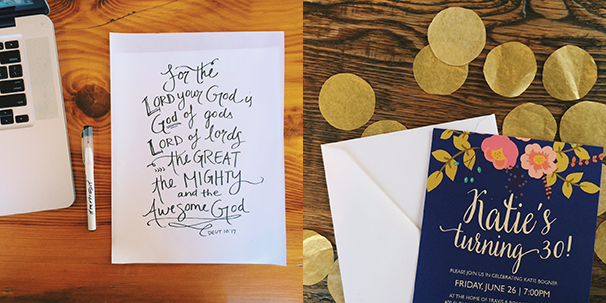 For the
LORD your God is
God of gods
LORD of lords
the GREAT
the MIGHTY
and the
Awesome God
DEUT 10:17
Katie's
turning 30!
PLEASE JOIN US IN CELEBRATING KATIE BOGNER
FRIDAY, JUNE 26 | 7:00PM
AT THE HOME OF TRAVIS